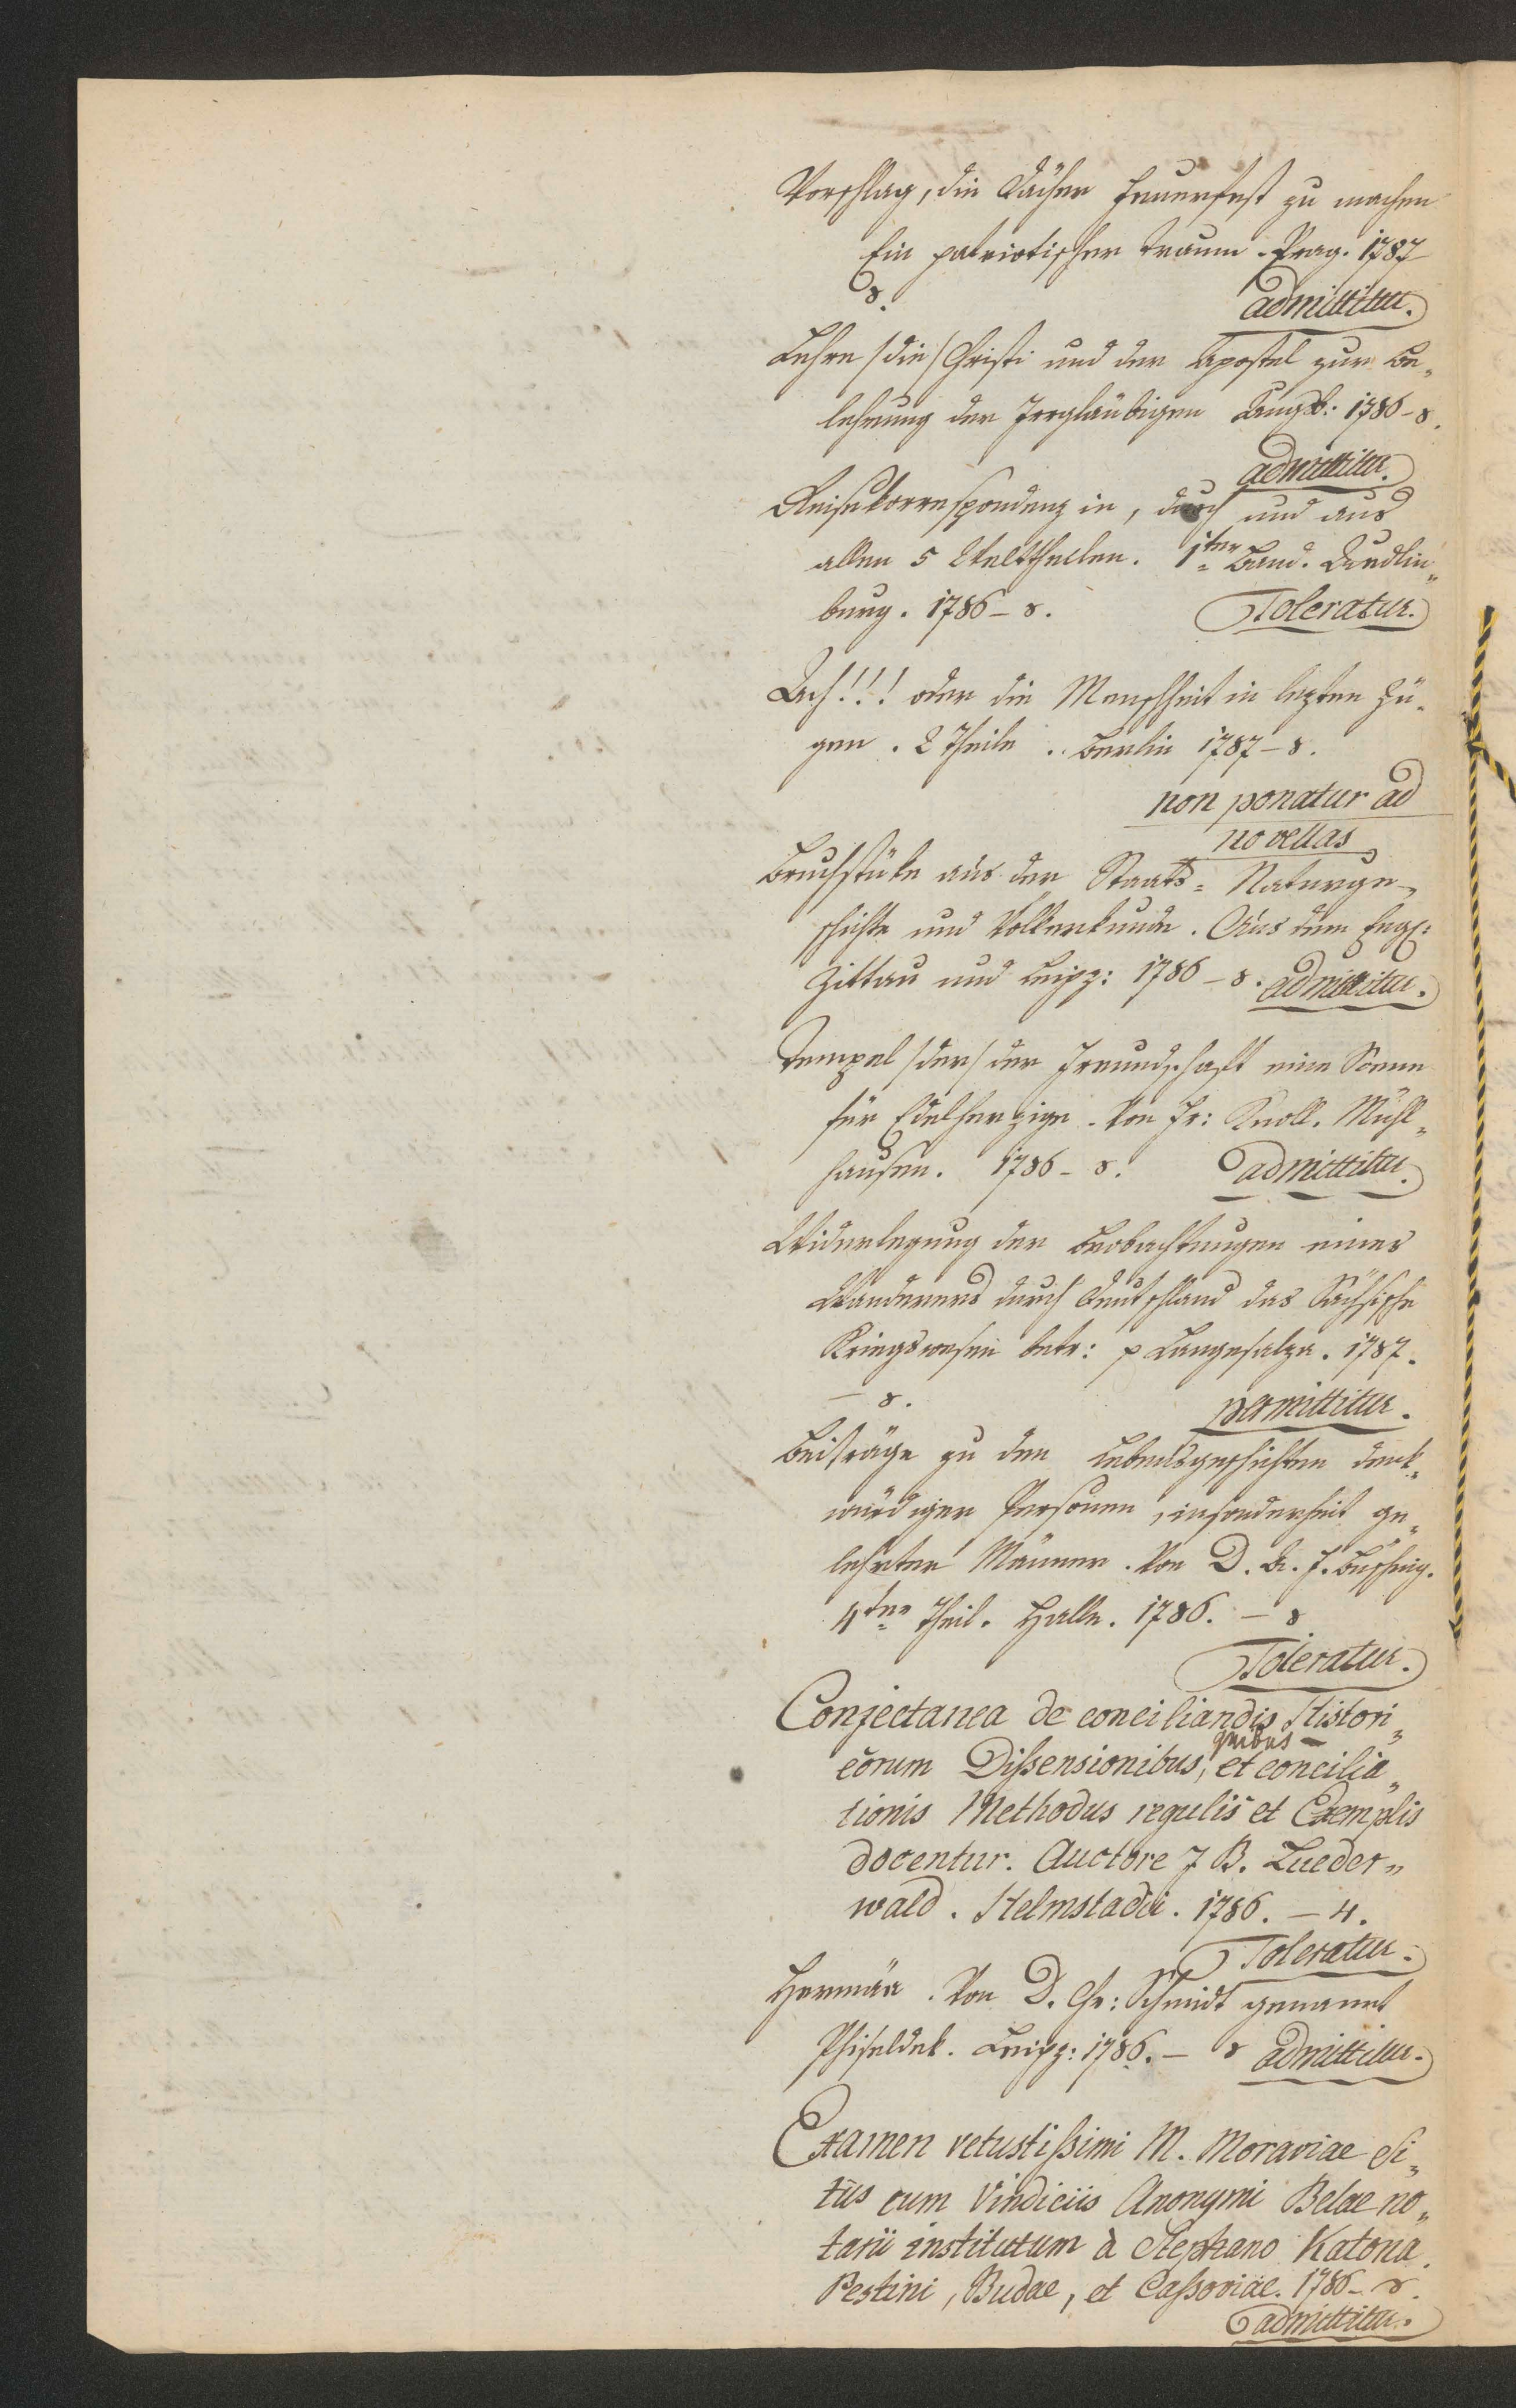 Vorschlag, die Dächer feuerfest zu machen
Ein patriotischer Traum. Prag. 1787
8.
admittitur.
Lehre /die/ Christi und der Apostel zur Be„
lehrung der Irrgläubigen Augsb: 1786 – 8.
admittitur.
Reisekorrespondenz in, durch und aus
allen 5 Welttheilen. 1ter Band. Quedlin„
burg. 1786 – 8.
Toleratur.
Ach!!! oder die Menschheit in lezten Zü„
gen. 2 Theile .. Berlin 1787 – 8.
non ponatur ad
novellas
Bruchstüke aus der Staats= Naturge„
schichte und Völkerkunde. Aus dem Engl:
Zittau und Leipz: 1786 – 8. admittitur.
Tempel /der/ der Freundschaft eine Scene
für Edelherzige. Von Fr: Knoll. Mühl„
hausen. 1786 – 8. admittitur.
Widerlegung der Beobachtungen eines
Wanderers durch Deutschland das Sächsische
Kriegswesen betr: p Langesalza. 1787.
– 8.
permittitur.
Beiträge zu den Lebensgeschichten denk„
würdiger Personen, insonderheit ge„
lehrter Männer. Von D. A. F. Büsching.
4ter Theil. Halle. 1786. – 8
Toleratur.
Conjectanea de conciliandis Histori„
corum Dißensionibus, quibus et concilia„
tionis Methodus regulis et Exemplis
docentur. Auctore J B. Lueder„
wald. Helmstadii. 1786. – 4.
Toleratur.
Hermäa. Von D. Chr: Schmidt genannt
Phiseldek. Leipz: 1786. – 8 admittitur.
Examen vetustißimi M. Moraviae Si„
tus cum Vindiciis Anonymi Belae no„
tarii institutum à Stephano Katona.
Pestini, Budae, et Caßoviae. 1786 – 8.
admittitur.